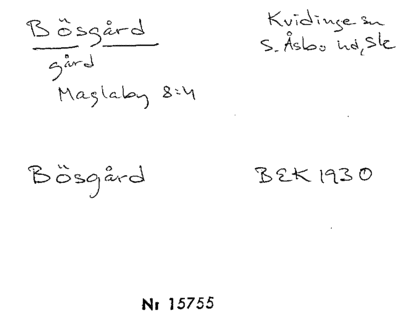 Bösgård
Kvidinge sn
gård
S. Åsbo hd, Sk
Maglaby 8:4
Bösgård
BEK 1930
Nr 15755